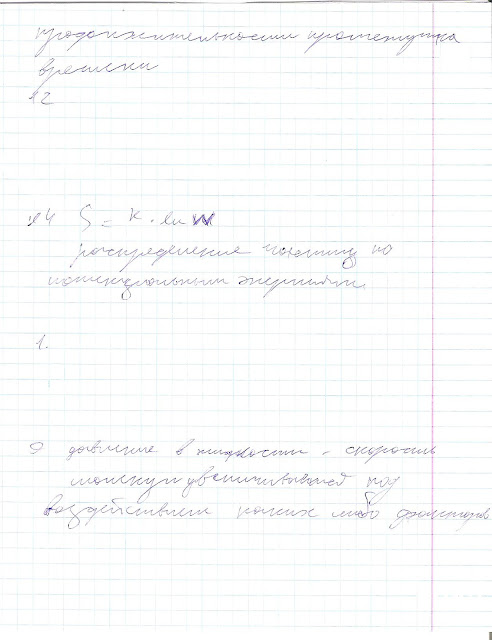 продолжительности промежутка
времени
12
14 S = k · ln W
распределение частиц по
потенциальным энергиям
1.
9 давление в жидкости - скорость
молекул увеличивается под
воздействием каких либо факторов